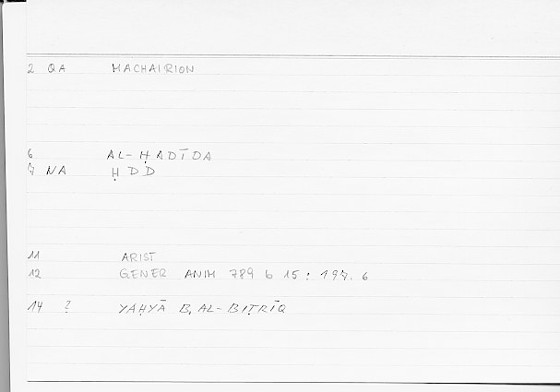 2 QA MACHAIRION
6 AL-ḤADĪDA
7 NA ḤDD
11 ARIST
12 GENER ANIM 789 b 15 : 197. 6
14 ? YAḤYĀ B. AL-BIṬRĪQ